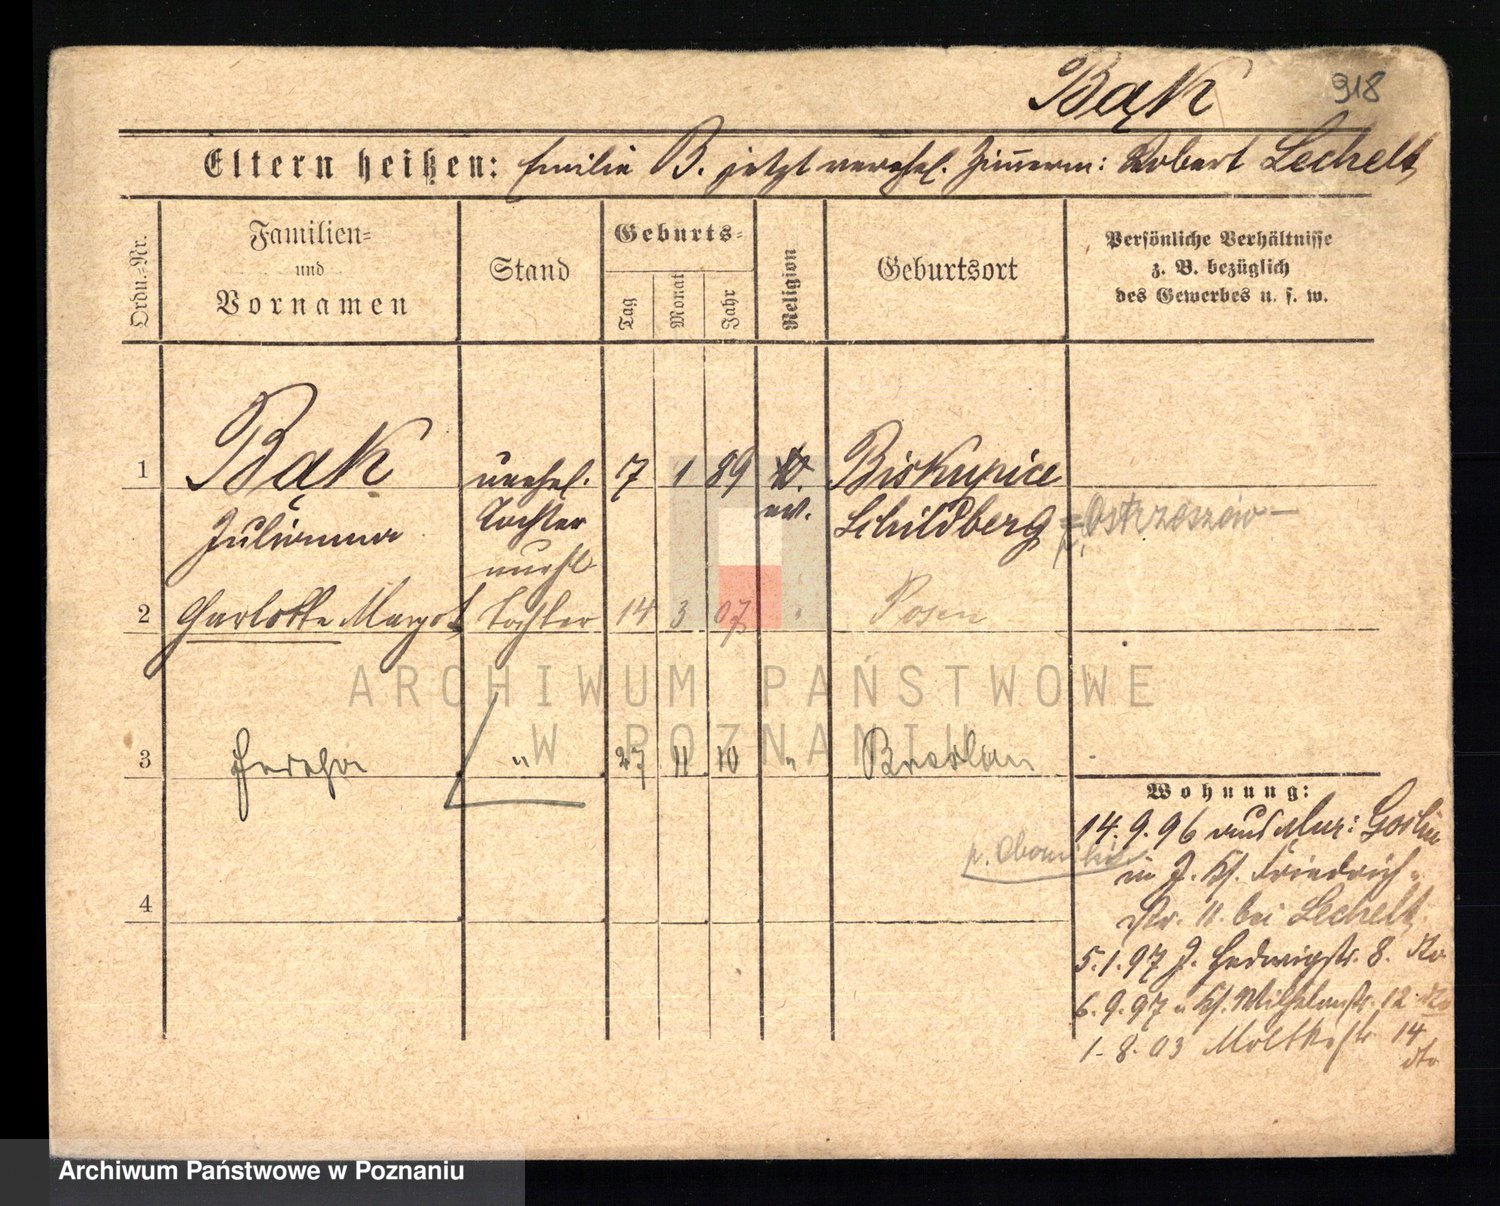 Bąk 918
Eltern heißen: Emilie B. jetzt verehel. Zimmerm: Robert Lechelt
Ordn.-Nr.
Familien-
und
Vornamen
Stand
Geburts-
Tag
Monat
Jahr
Religion
Geburtsort
Persönliche Verhältnisse
z. B. bezüglich
des Gewerbes u. s. w.
1 Bąk unehel. 7 1 89 Biskupice
Julianna Tochter ev. Schildberg = p. Ostrzeszów
unehl
2 Charlotte Margot Tochter 14 3 07 " Posen
3 " 27 11 10 " Breslau
4
Wohnung:
14. 9. 96 aus Mur: Goslin
p. Oborniki
in J. Kl. Friedrich-
str. 11. bei Lechelt
5. 1. 97 J. Hedwigstr. 8. dto
6. 9. 97 " Kl. Wilhelmstr. 12. dto
1. 8. 03 Moltkestr 14
dto
ARCHIWUM PAŃSTWOWE
W POZNANIU
Archiwum Państwowe w Poznaniu